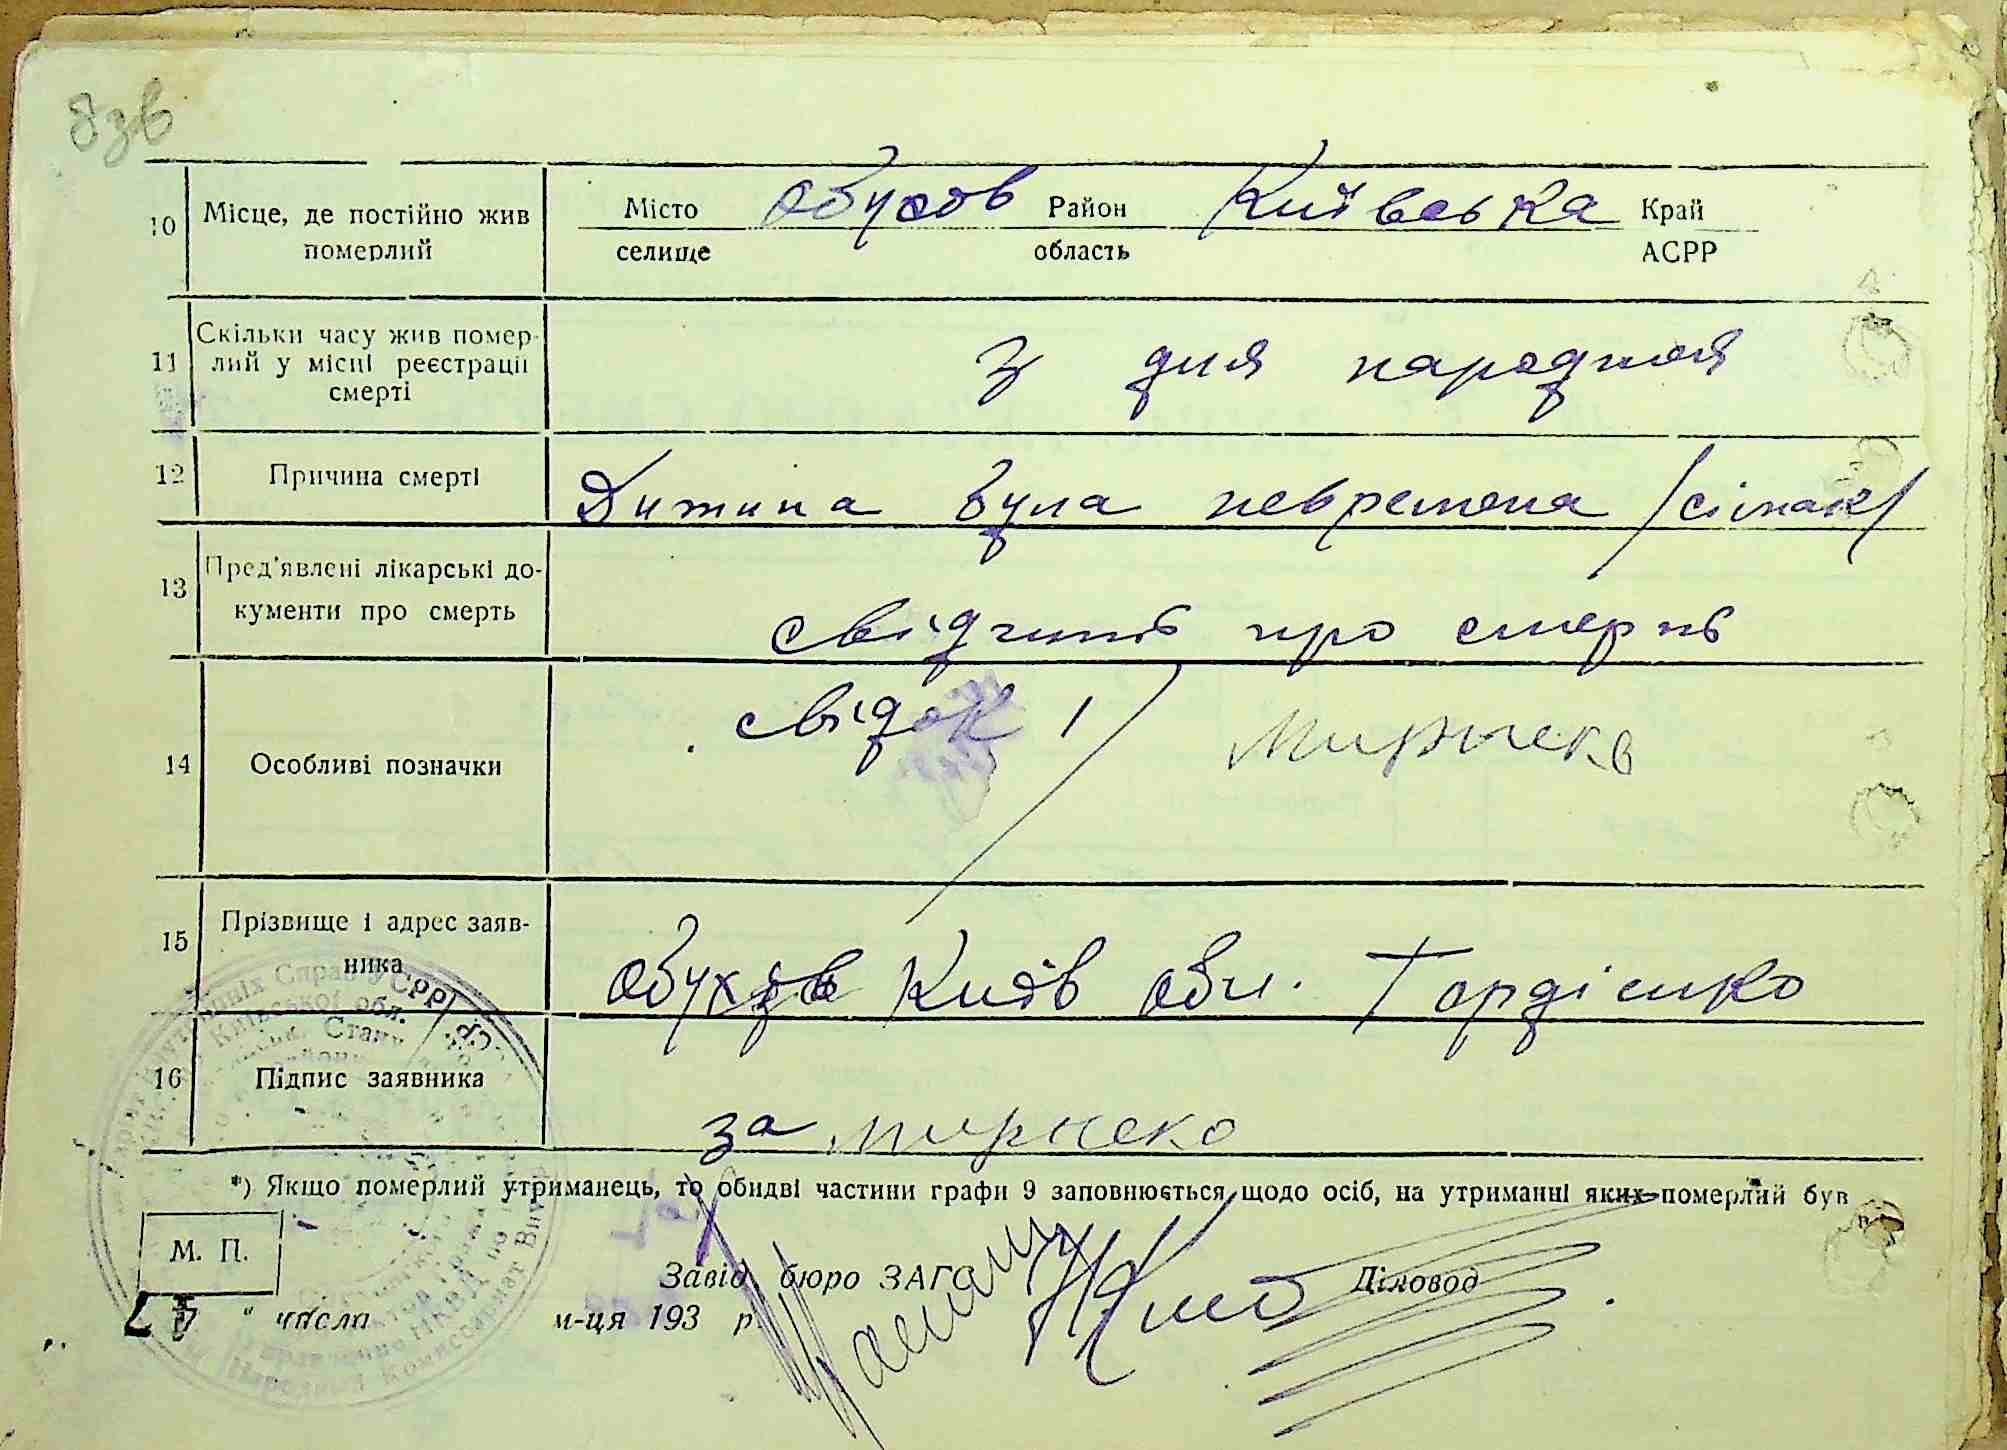 8зв
10 Місце, де постійно жив померлий
Місто Обухов Район Київська Край
селище область АСРР
11 Скільки часу жив помер-
лий у місці реєстрації
смерті
З дня народжня
12 Причина смерті
Дитина була невремена /сімак/
13 Пред'явлені лікарські до-
кументи про смерть
свідчить про смерть
14 Особливі позначки
свідок 1/ Мирнеко
15 Прізвище і адрес заяв-
ника
Обухів Київ обл. Гордієнко
16 Підпис заявника
за мирнеко
*) Якщо померлий утриманець, то обидві частини графи 9 заповнюється щодо осіб, на утриманні яких померлий був
М. П.
Завід. бюро ЗАГС Діловод
" числа м-ця 193 р.